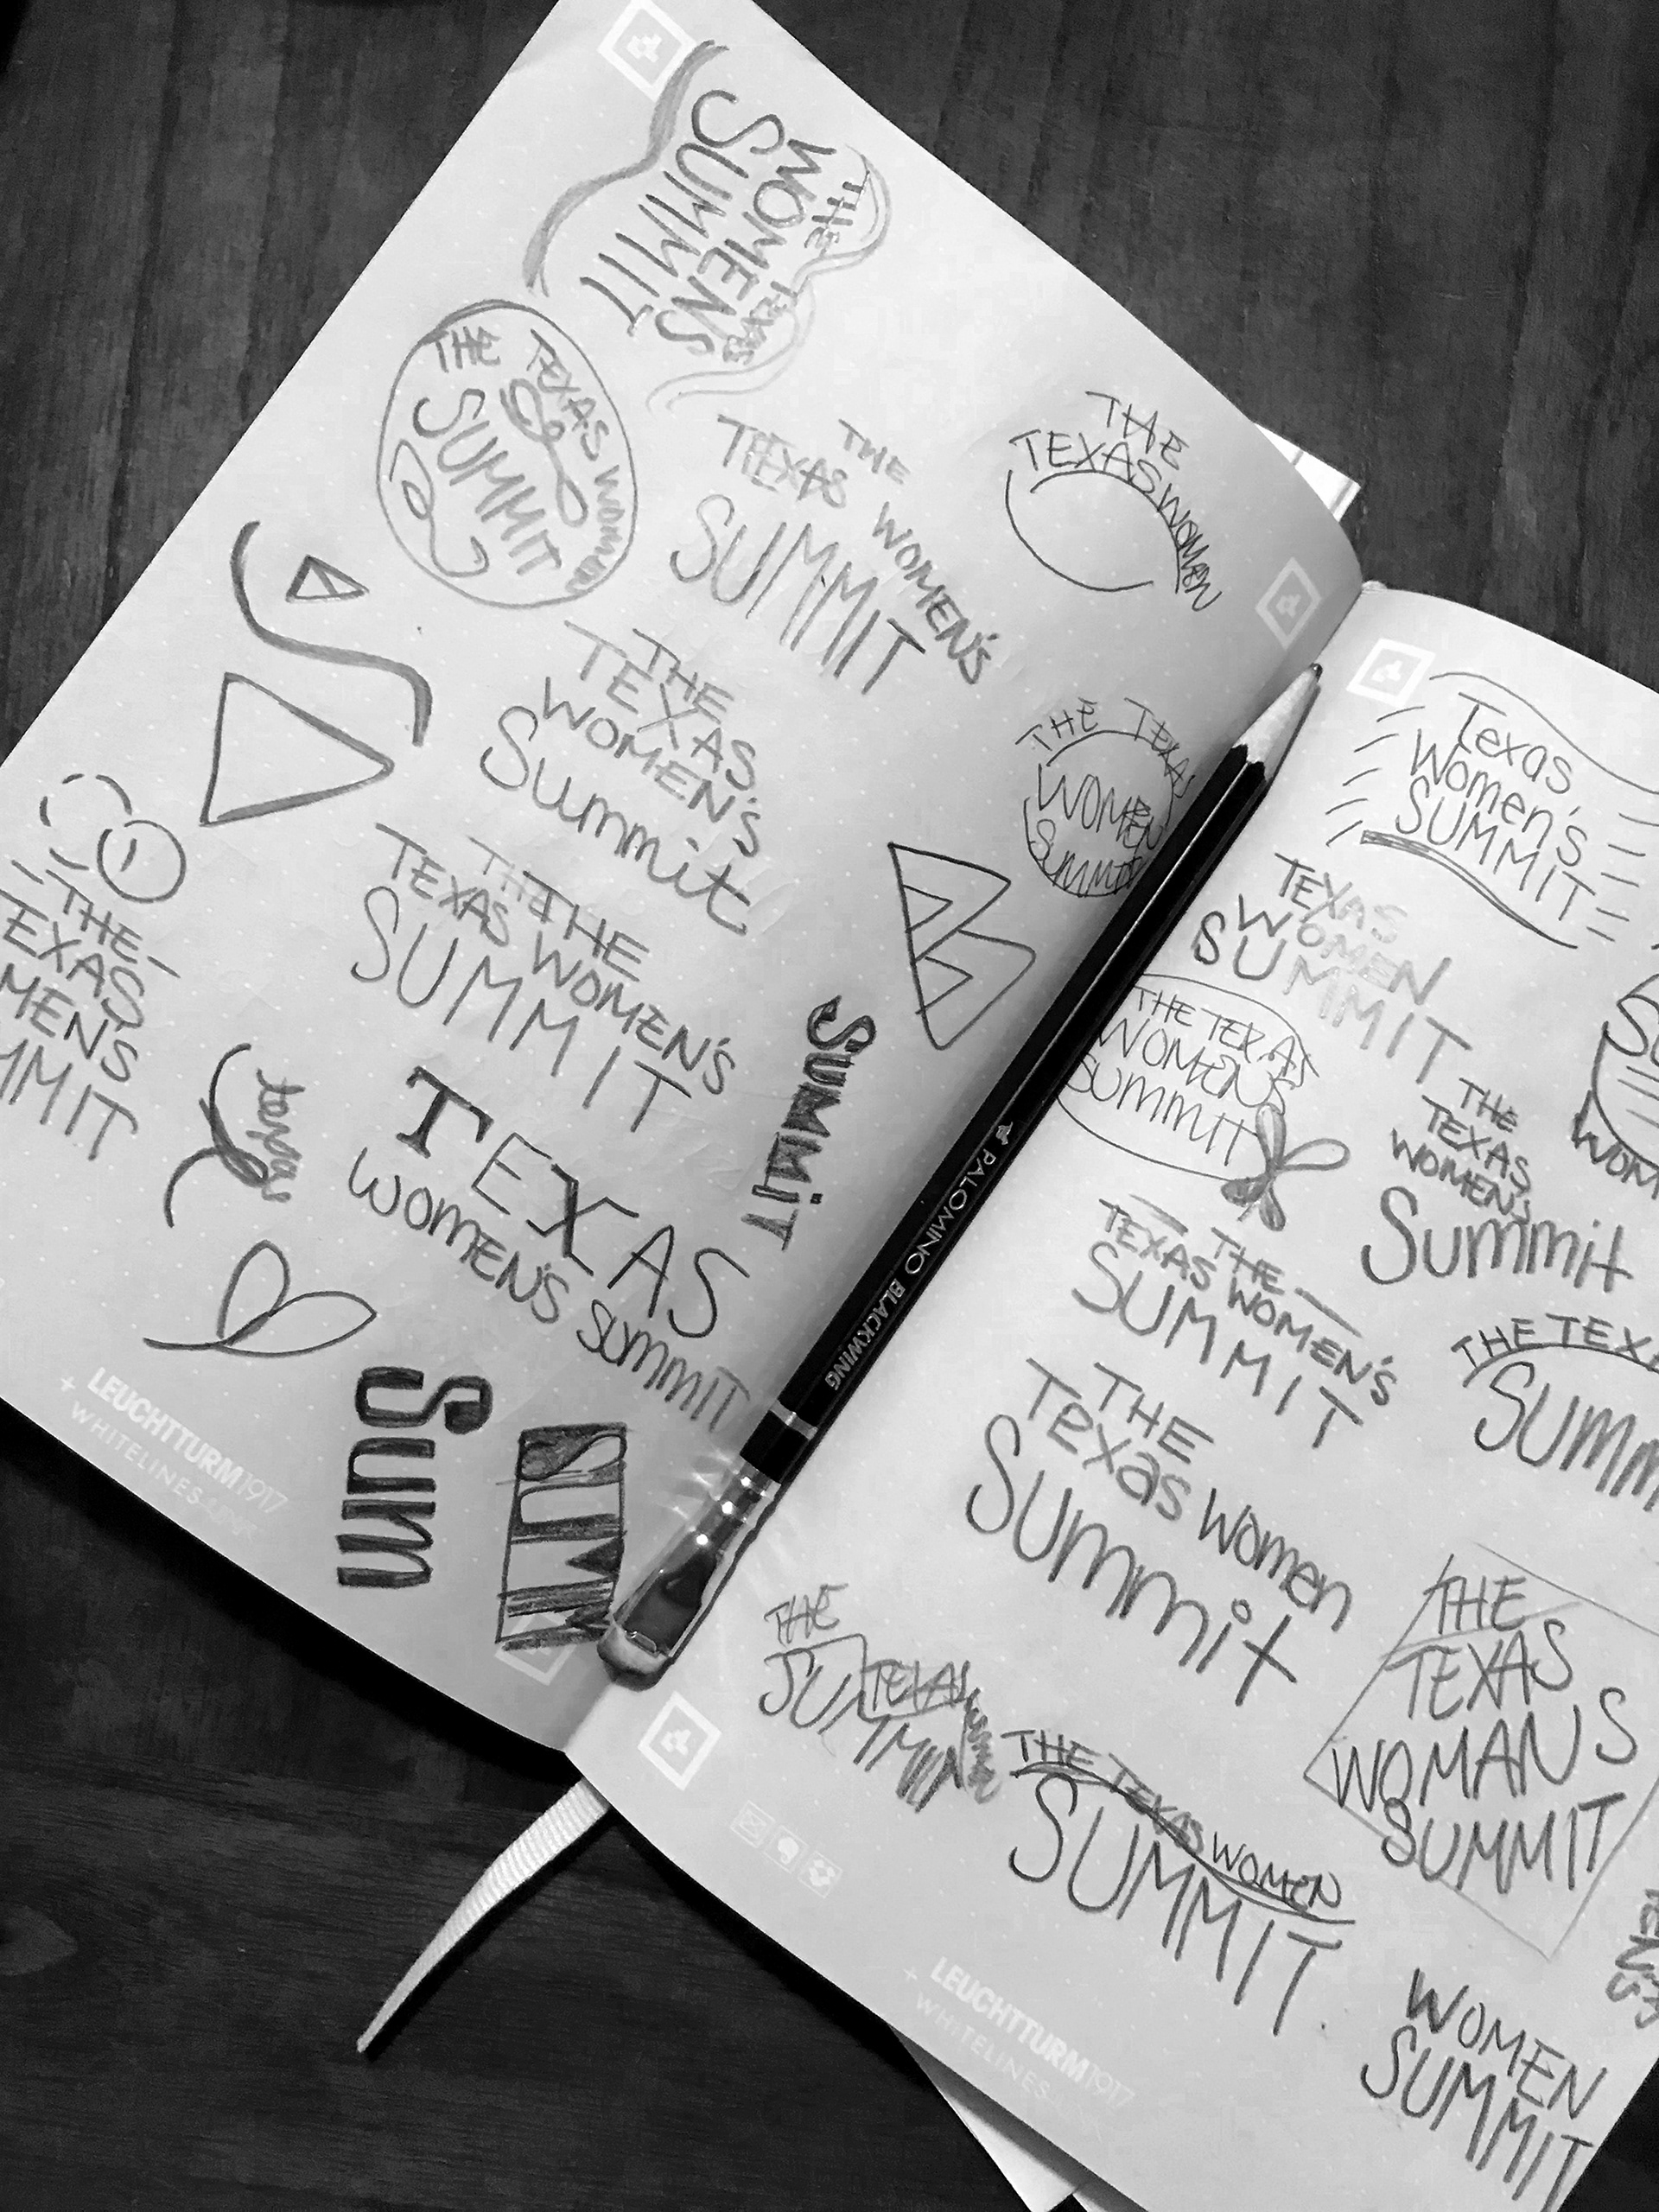 THE
WOMENS
TEXAS
SUMMIT
THE
TEXAS WOMEN
SUMMIT
THE
TEXAS WOMEN'S
SUMMIT
THE
TEXAS WOMEN
THE
TEXAS
WOMEN'S
Summit
THE TEXAS
WOMEN
SUMMIT
THE
TEXAS WOMEN'S
SUMMIT
-THE-
TEXAS
MEN'S
MMIT
Summit
texas
TEXAS
WOMEN'S SUMMIT
Sum
SUM
LEUCHTTURM1917
+ WHITELINES LINK
PALOMINO BLACKWING
Texas
Women's
SUMMIT
TEXAS
WOMEN
SUMMIT
THE TEXAS
WOMENS
SUMMIT
THE
TEXAS
WOMEN'S
Summit
WOM
— THE —
TEXAS WOMEN'S
SUMMIT
THE TEX
SUMM
THE
Texas Women
Summit
THE
TEXAS
WOMAN'S
SUMMIT
THE
TEXAS
SUMMIT
THE TEXAS WOMEN
SUMMIT
WOMEN
SUMMIT
LEUCHTTURM1917
+ WHITELINES